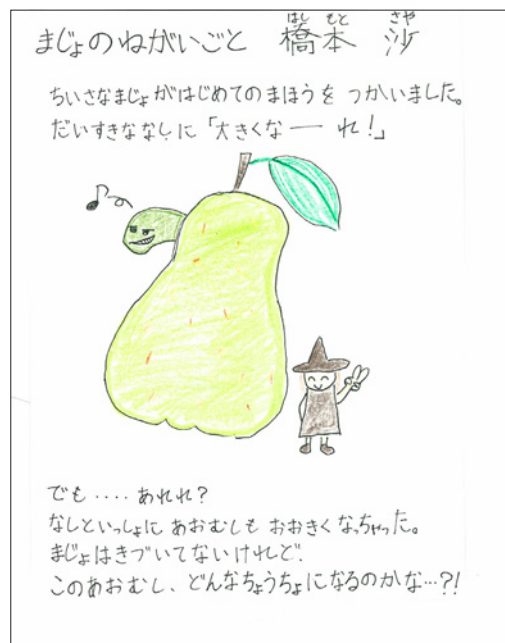 まじょのねがいごと 橋本 沙
はし もと さや
ちいさなまじょがはじめてのまほうを つかいました。
だいすきななしに「大きくな―― れ!」
でも‥‥あれれ?
なしといっしょに あおむしも おおきくなっちゃった。
まじょはきづいてないけれど、
このあおむし、どんなちょうちょになるのかな…?!